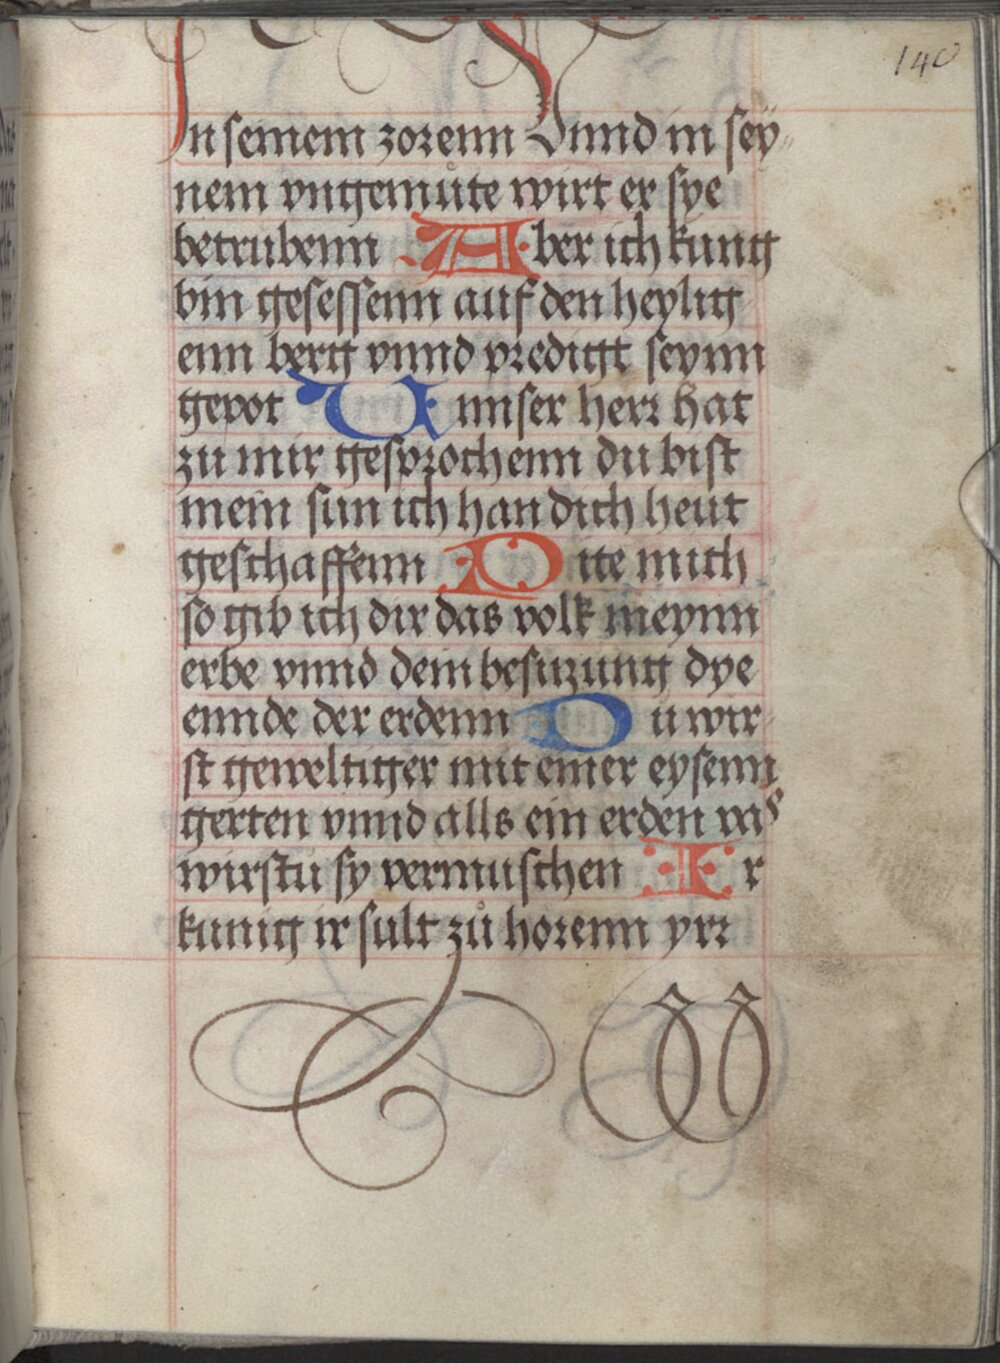 140
In seinem zorenn Vnnd in sey„
nem vngemůte wirt er sye
betrubenn Aber ich kunig
bin gesessenn auf den heylig
enn berg vnnd predigt seynn
gepot Unnser herr hat
zu mir gesprochenn du bist
mein sun ich han dich heut
geschaffenn Pitte mich
so gib ich dir das volk meynn
erbe vnnd dein besitzung dye
ennde der erdenn Du wir
st geweltiger mit einer eysenn
gerten vnnd alls ein erden vas
wirstu sy vermuschen Er
kunig ir sult zů horenn yrr